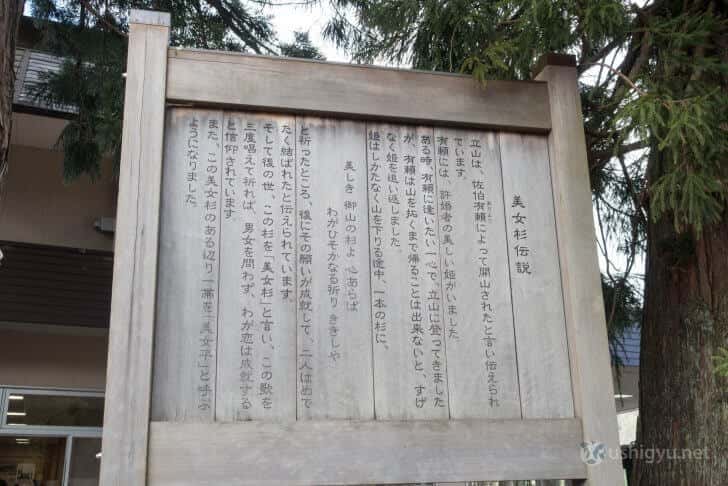 美女杉伝説
立山は、佐伯有頼によって開山されたと言い伝えられ
ています。
有頼には、許婚者の美しい姫がいました。
ある時、有頼に逢いたい一心で、立山に登ってきました
が、有頼は山を拓くまで帰ることは出来ないと、すげ
なく姫を追い返しました。
姫はしかたなく山を下りる途中、一本の杉に、
美しき 御山の杉よ 心あらば
わがひそかなる祈り ききしや
と祈ったところ、後にその願いが成就して、二人はめで
たく結ばれたと伝えられています。
そして後の世、この杉を「美女杉」と言い、この歌を
三度唱えて祈れば、男女を問わず、わが恋は成就する
と信仰されています。
また、この美女杉のある辺り一帯を「美女平」と呼ぶ
ようになりました。
ushigyu.net